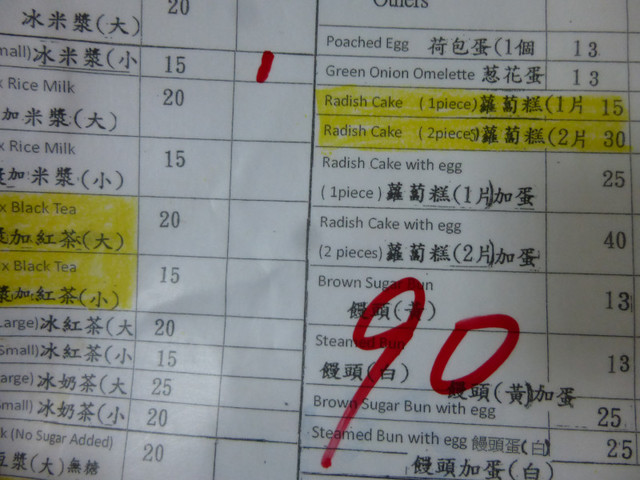 20
冰米漿(大)
small) 冰米漿(小 15 1
x Rice Milk 20
加米漿(大)
x Rice Milk 15
加米漿(小)
x Black Tea 20
加紅茶(大)
x Black Tea 15
漿加紅茶(小)
Large) 冰紅茶(大 20
Small) 冰紅茶(小 15
arge) 冰奶茶(大 25
Small) 冰奶茶(小 20
k (No Sugar Added) 20
豆漿(大)無糖
Others
Poached Egg 荷包蛋(1個 13
Green Onion Omelette 蔥花蛋 13
Radish Cake (1piece) 蘿蔔糕(1片 15
Radish Cake (2pieces) 蘿蔔糕(2片 30
Radish Cake with egg 25
(1piece) 蘿蔔糕(1片)加蛋
Radish Cake with egg 40
(2 pieces) 蘿蔔糕(2片)加蛋
Brown Sugar Bun 13
饅頭(黃)
Steamed Bun 13
饅頭(白)
饅頭(黃)加蛋
Brown Sugar Bun with egg 25
Steamed Bun with egg 饅頭蛋(白) 25
饅頭加蛋(白)
90